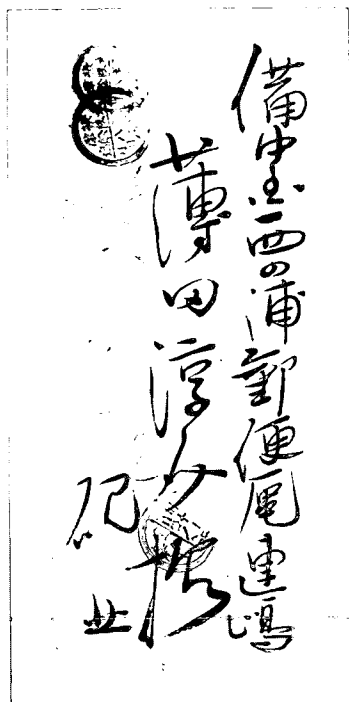 備中国西の浦郵便局連嶋
薄田淳介様